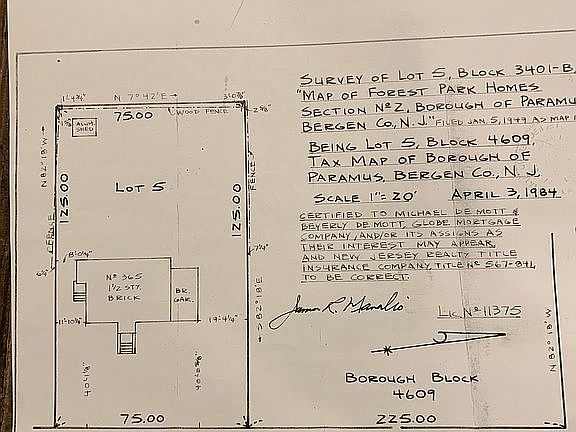 SURVEY OF LOT 5, BLOCK 3401-B,
"MAP OF FOREST PARK HOMES
SECTION Nº2, BOROUGH OF PARAMUS
BERGEN CO., N.J." FILED JAN. 5, 1949 AS MAP
BEING LOT 5, BLOCK 4609,
TAX MAP OF BOROUGH OF
PARAMUS, BERGEN CO., N.J.
SCALE 1"= 20' APRIL 3, 1984
CERTIFIED TO MICHAEL DE MOTT &
BEVERLY DE MOTT, GLOBE MORTGAGE
COMPANY, AND/OR ITS ASSIGNS AS
THEIR INTEREST MAY APPEAR,
AND NEW JERSEY REALTY TITLE
INSURANCE COMPANY, TITLE Nº 567-841,
TO BE CORRECT.
LIC Nº 11375
BOROUGH BLOCK
4609
225.00
N 82° 18' W
N 7° 42' E
75.00
WOOD FENCE
ALUM.
SHED
N 82° 18' W
LOT 5
125.00
125.00
FENCE
FENCE
7¼"
8'-0¼"
Nº 365
1½ STY.
BRICK
BR.
GAR.
S 82° 18' E
11'-10⅜"
19'-4¼"
75.00